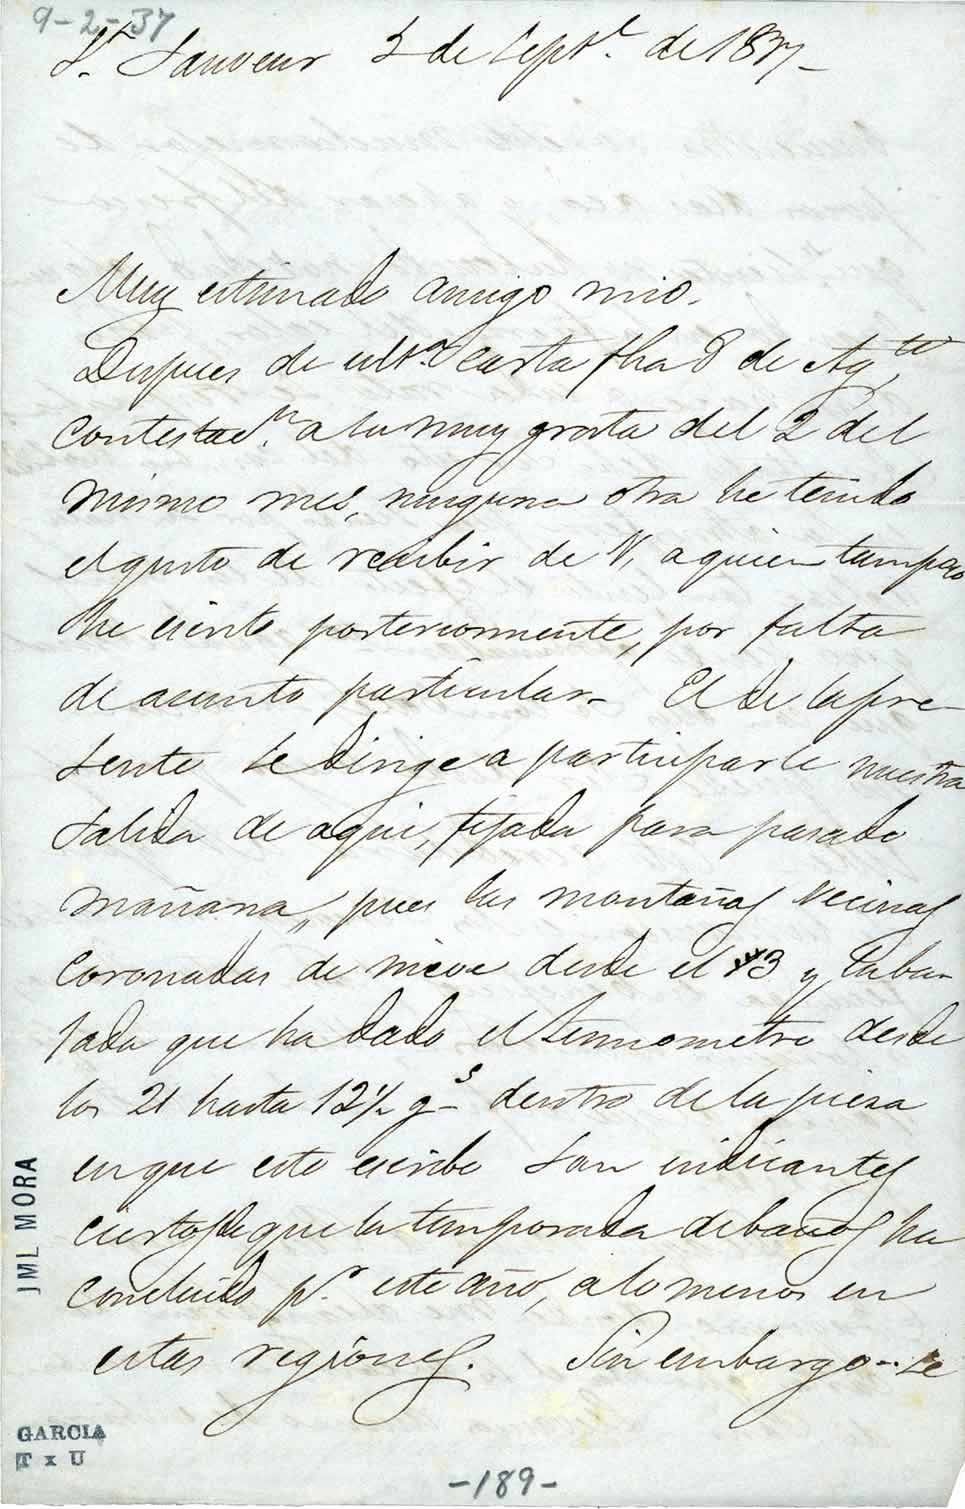 9-2-37
St. Sauveur 5 de Sept.e de 1837_
Muy estimado amigo mio.
Despues de ulta. carta fha 8 de Agto,
contestacn. a la muy grata del 2 del
mismo mes, ninguna otra he tenido
el gusto de recibir de V, a quien tampoco
he escrito posteriormente, por falta
de asunto particular_ El de la pre-
sente se dirige a participarle nuestra
salida de aqui, fijada para pasado
mañana, pues las montañas vecinas
coronadas de nieve desde el 3 y la ban-
tada que ha dado el termometro desde
los 21 hasta 12½ gs dentro de la pieza
en que esto escribo son indicantes
ciertos de que la temporada de baños ha
concluido pr. este año, a lo menos en
estas regiones. Sin embargo se
JML MORA
GARCIA
T x U
-189-